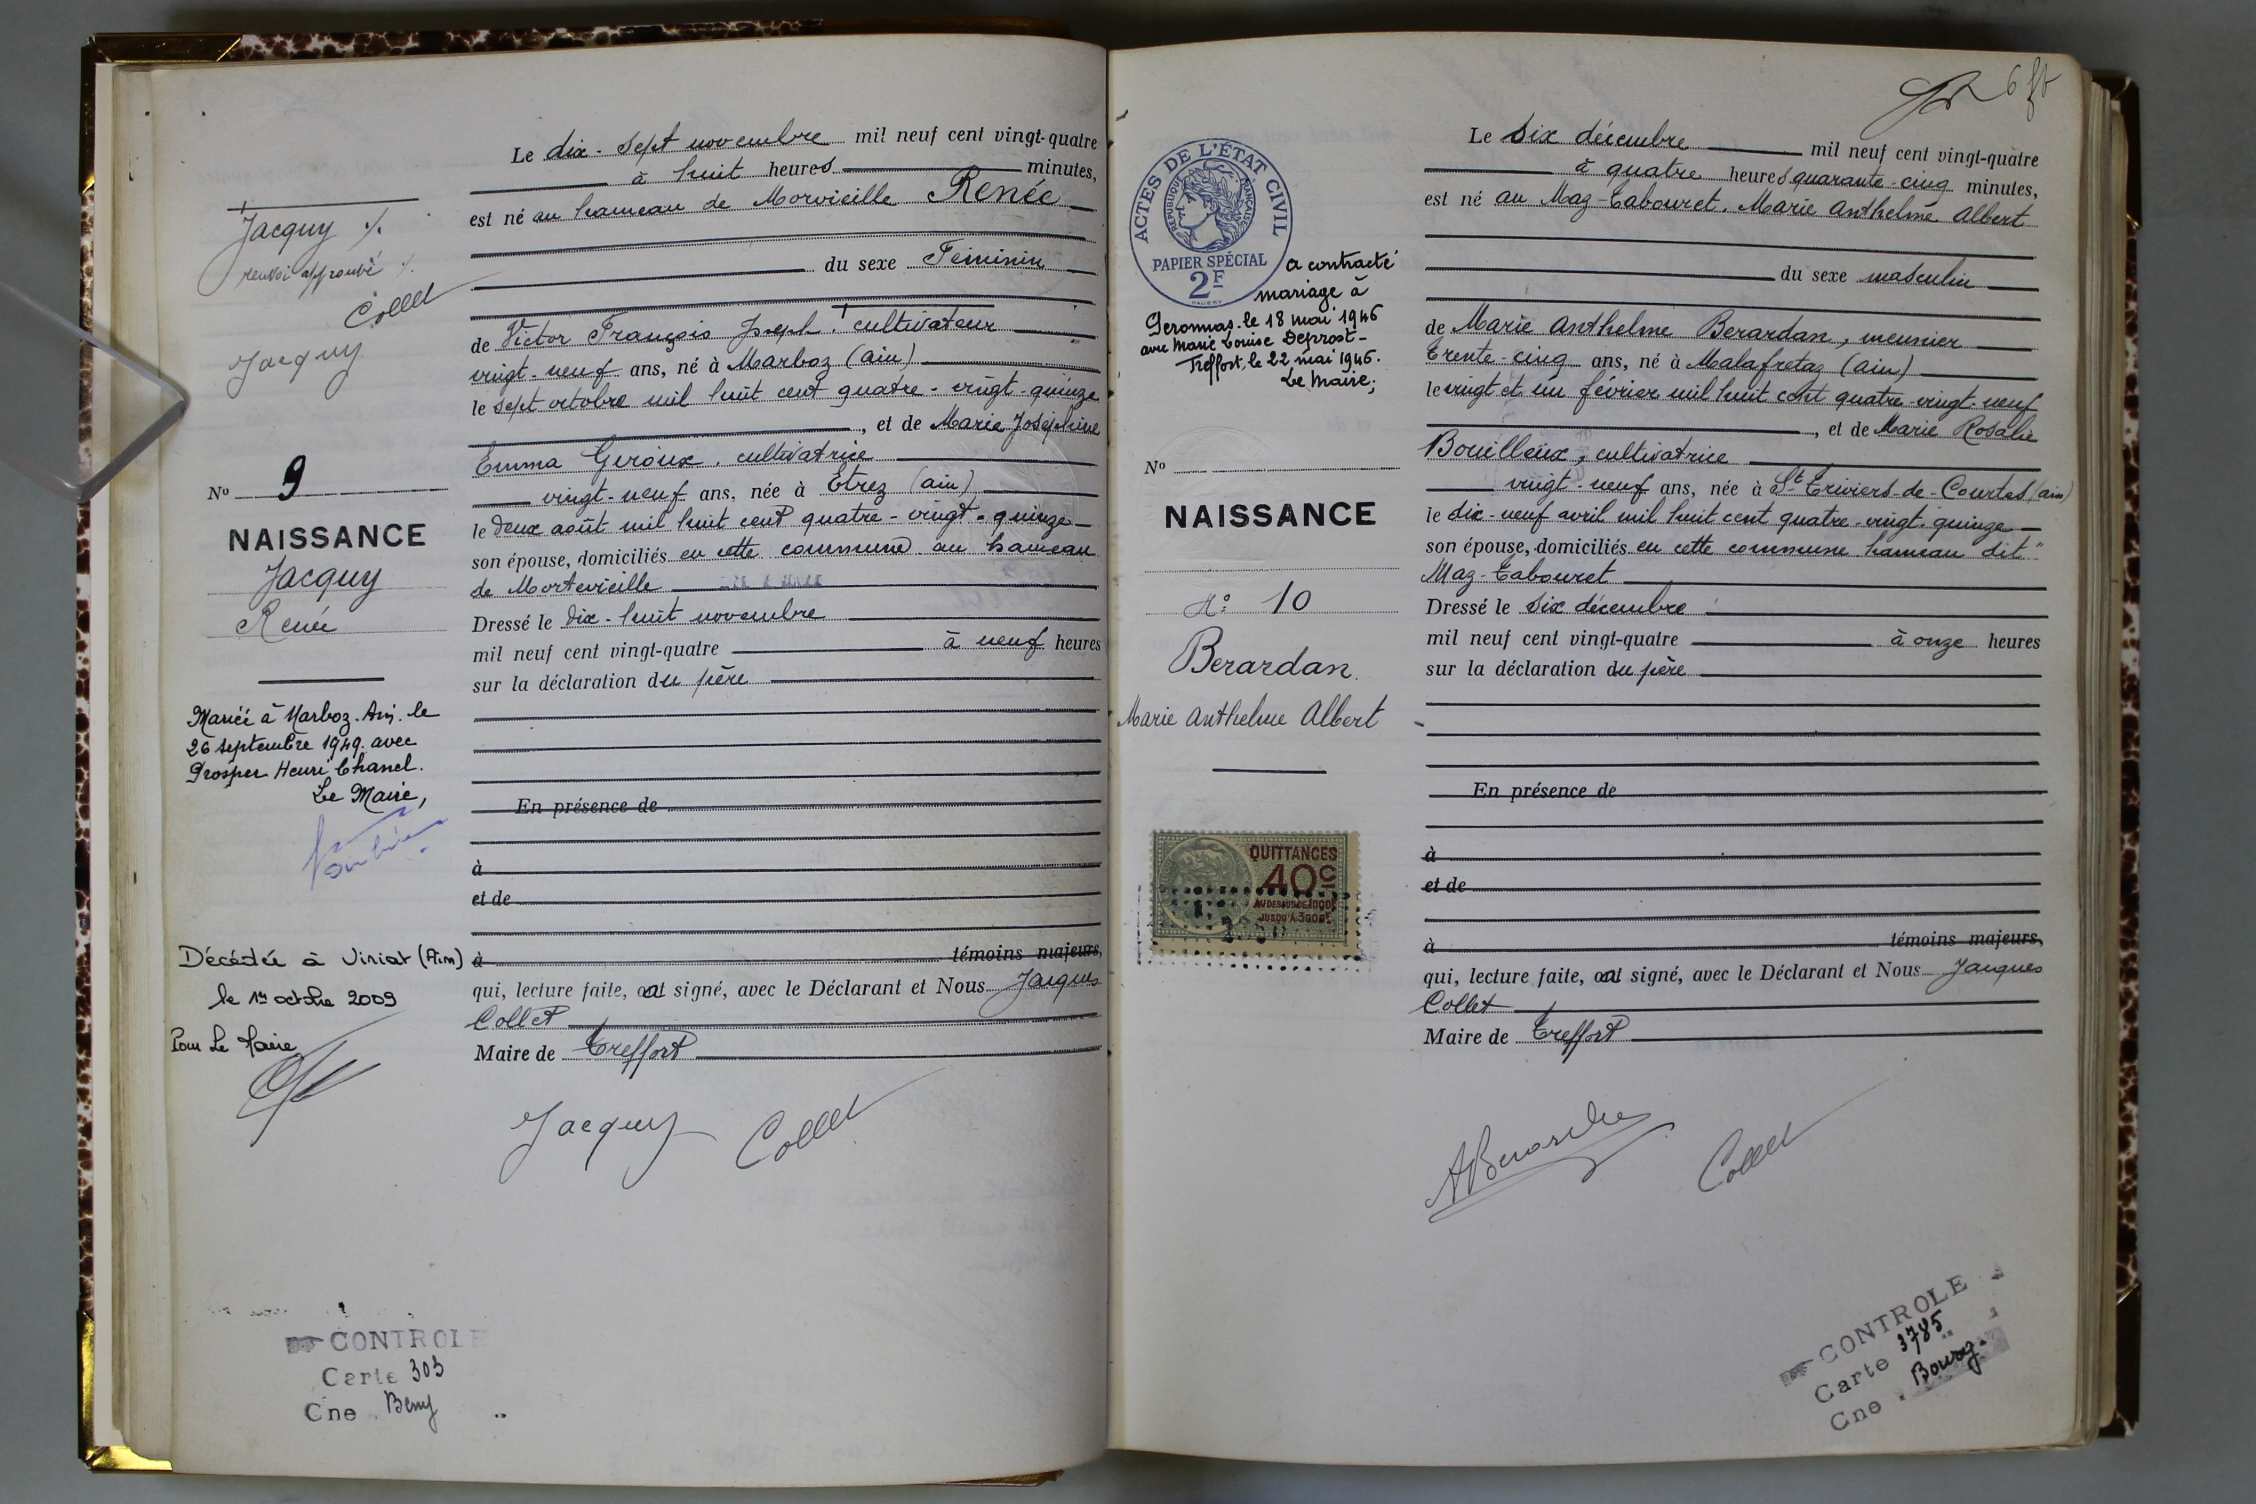 Jacquy ./.
renvoi approuvé ./.
Collet
Jacquy
No 9
NAISSANCE
Jacquy
Renée
Mariée à Marboz. Ain. le
26 septembre 1949. avec
Prosper Henri Chanel.
Le Maire,
Décédée à Viriat (Ain)
le 1er octobre 2009
Pour Le Maire
CONTROLE
Carte 303
Cne Beny
Le dix-sept novembre mil neuf cent vingt-quatre
à huit heures minutes,
est né au hameau de Morvieille Renée
du sexe Féminin
de Victor François Joseph, cultivateur
vingt-neuf ans, né à Marboz (ain)
le sept octobre mil huit cent quatre-vingt-quinze
, et de Marie Joséphine
Emma Geroux, cultivatrice
vingt-neuf ans, née à Etrez (ain)
le deux août mil huit cent quatre-vingt-quinze
son épouse, domiciliés en cette commune au hameau
de Mortevieille
Dressé le dix-huit novembre
mil neuf cent vingt-quatre à neuf heures
sur la déclaration du père
En présence de
à
et de
à témoins majeurs,
qui, lecture faite, a signé, avec le Déclarant et Nous Jacques
Collet
Maire de Treffort
Jacquy Collet
6
ACTES DE L'ÉTAT CIVIL
RÉPUBLIQUE FRANÇAISE
PAPIER SPÉCIAL
2F
a contracté
mariage à
Jeronnas le 18 mai 1946
avec Marie Louise Deprost-
Treffort, le 22 mai 1946.
Le Maire;
No
NAISSANCE
No: 10
Berardan
Marie Anthelme Albert
QUITTANCES
40c
AU DESSUS DE 1000F
JUSQU'À 3000F
Le Six décembre mil neuf cent vingt-quatre
à quatre heures quarante-cinq minutes,
est né au Maz-Tabouret, Marie Anthelme Albert
du sexe masculin
de Marie Anthelme Berardan, meunier
trente-cinq ans, né à Malafretaz (ain)
le vingt et un février mil huit cent quatre-vingt-neuf
, et de Marie Rosalie
Bouilloux, cultivatrice
vingt-neuf ans, née à St Triviers-de-Courtes (ain)
le dix-neuf avril mil huit cent quatre-vingt-quinze
son épouse, domiciliés en cette commune hameau dit"
Maz-Tabouret
Dressé le six décembre
mil neuf cent vingt-quatre à onze heures
sur la déclaration du père
En présence de
à
et de
à témoins majeurs,
qui, lecture faite, a signé, avec le Déclarant et Nous Jacques
Collet
Maire de Treffort
Collet
CONTROLE
Carte 3785
Cne Bourg